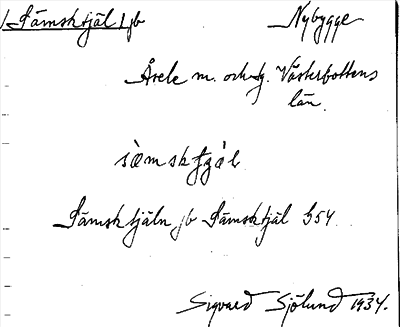 /Sämsktjäl/ jb Nybygge
Åsele m. och sg. Västerbottens
län.
sæ̀mskt̬çál
Sämsktjäln jb Sämsktjäl 354.
Sigvard Sjölund 1934.